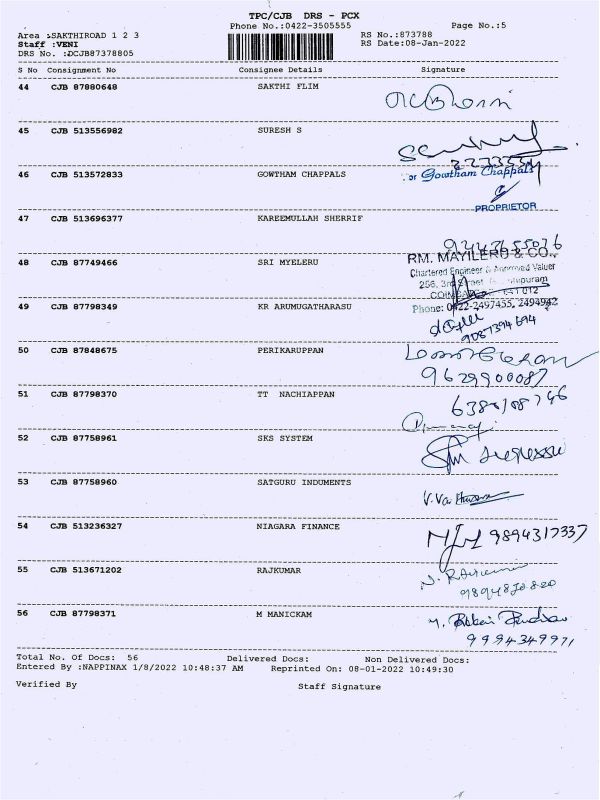 TPC/CJB DRS - PCX
Phone No.:0422-3505555 Page No.:5
Area :SAKTHIROAD 1 2 3 RS No.:873788
Staff :VENI RS Date:08-Jan-2022
DRS No. :DCJB87378805
S No Consignment No Consignee Details Signature
44 CJB 87880648 SAKTHI FLIM
45 CJB 513556982 SURESH S
46 CJB 513572833 GOWTHAM CHAPPALS
For Gowtham Chappals
PROPRIETOR
47 CJB 513696377 KAREEMULLAH SHERRIF
48 CJB 87749466 SRI MYELERU
RM. MAYILERU & CO.,
Chartered Engineer & Approved Valuer
256, 3rd Street
Phone: 0422-2497435, 2494942
49 CJB 87798349 KR ARUMUGATHARASU
9087394694
50 CJB 87848675 PERIKARUPPAN
9629900087
51 CJB 87798370 TT NACHIAPPAN
52 CJB 87758961 SKS SYSTEM
53 CJB 87758960 SATGURU INDUMENTS
54 CJB 513236327 NIAGARA FINANCE
9894317337
55 CJB 513671202 RAJKUMAR
56 CJB 87798371 M MANICKAM
9994349971
Total No. Of Docs: 56 Delivered Docs: Non Delivered Docs:
Entered By :NAPPINAX 1/8/2022 10:48:37 AM Reprinted On: 08-01-2022 10:49:30
Verified By Staff Signature